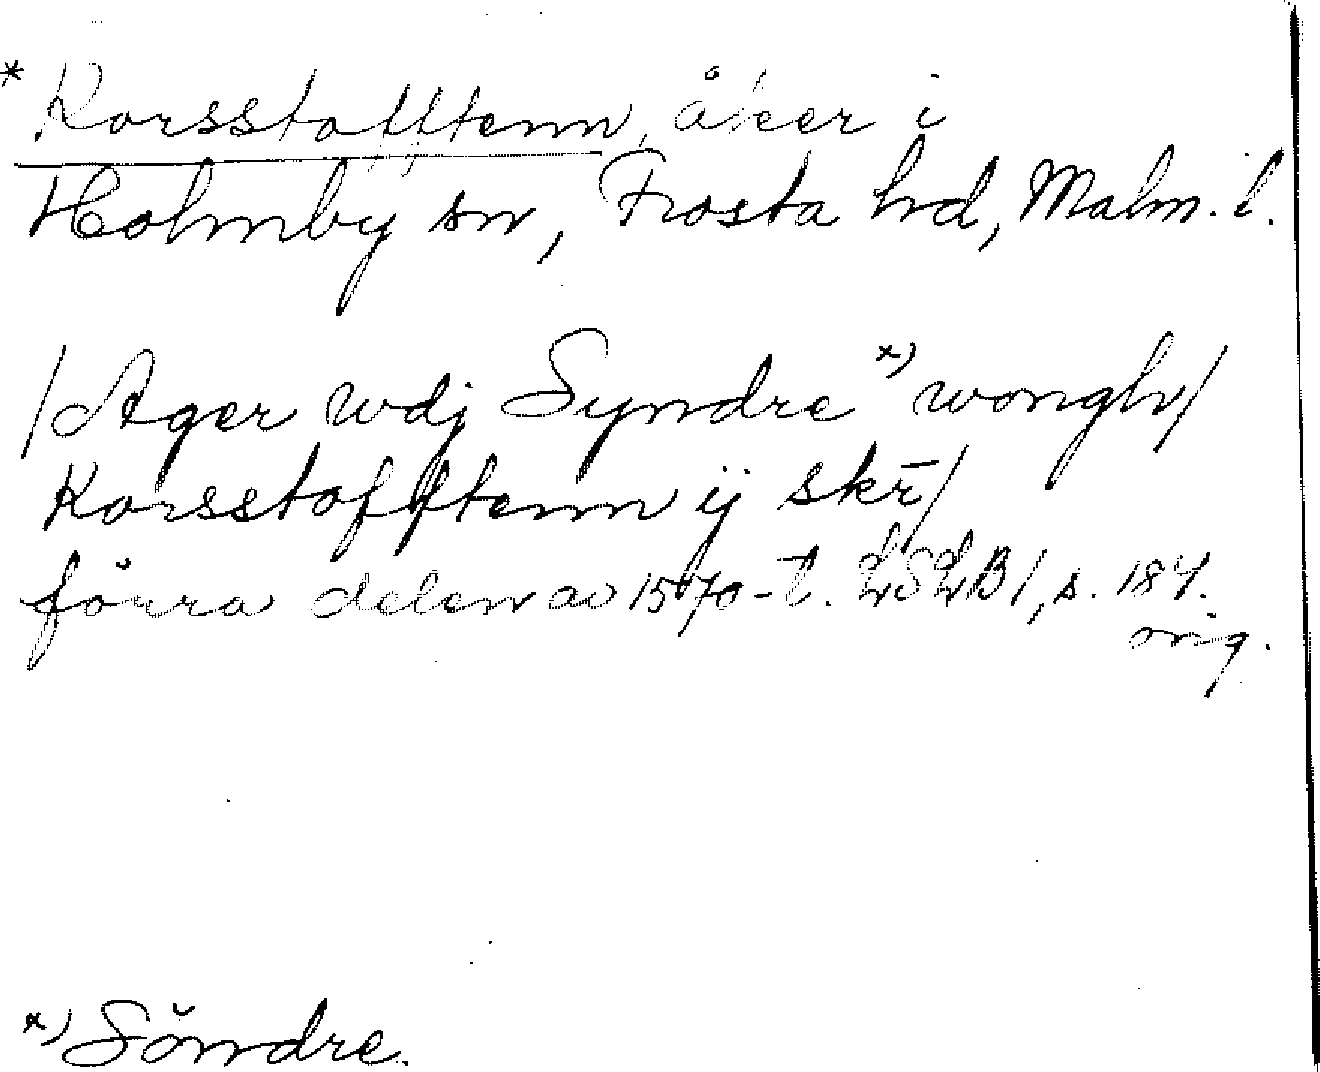 * Korsstofftenn, åker i
Holmby sn, Frosta hd, Malm. l.
/Ager wdj Syndre x) wongh/
Korsstofftenn ij skr̄/
förra delen av 1570-t. LSLB 1, s. 184.
orig.
x) Söndre.